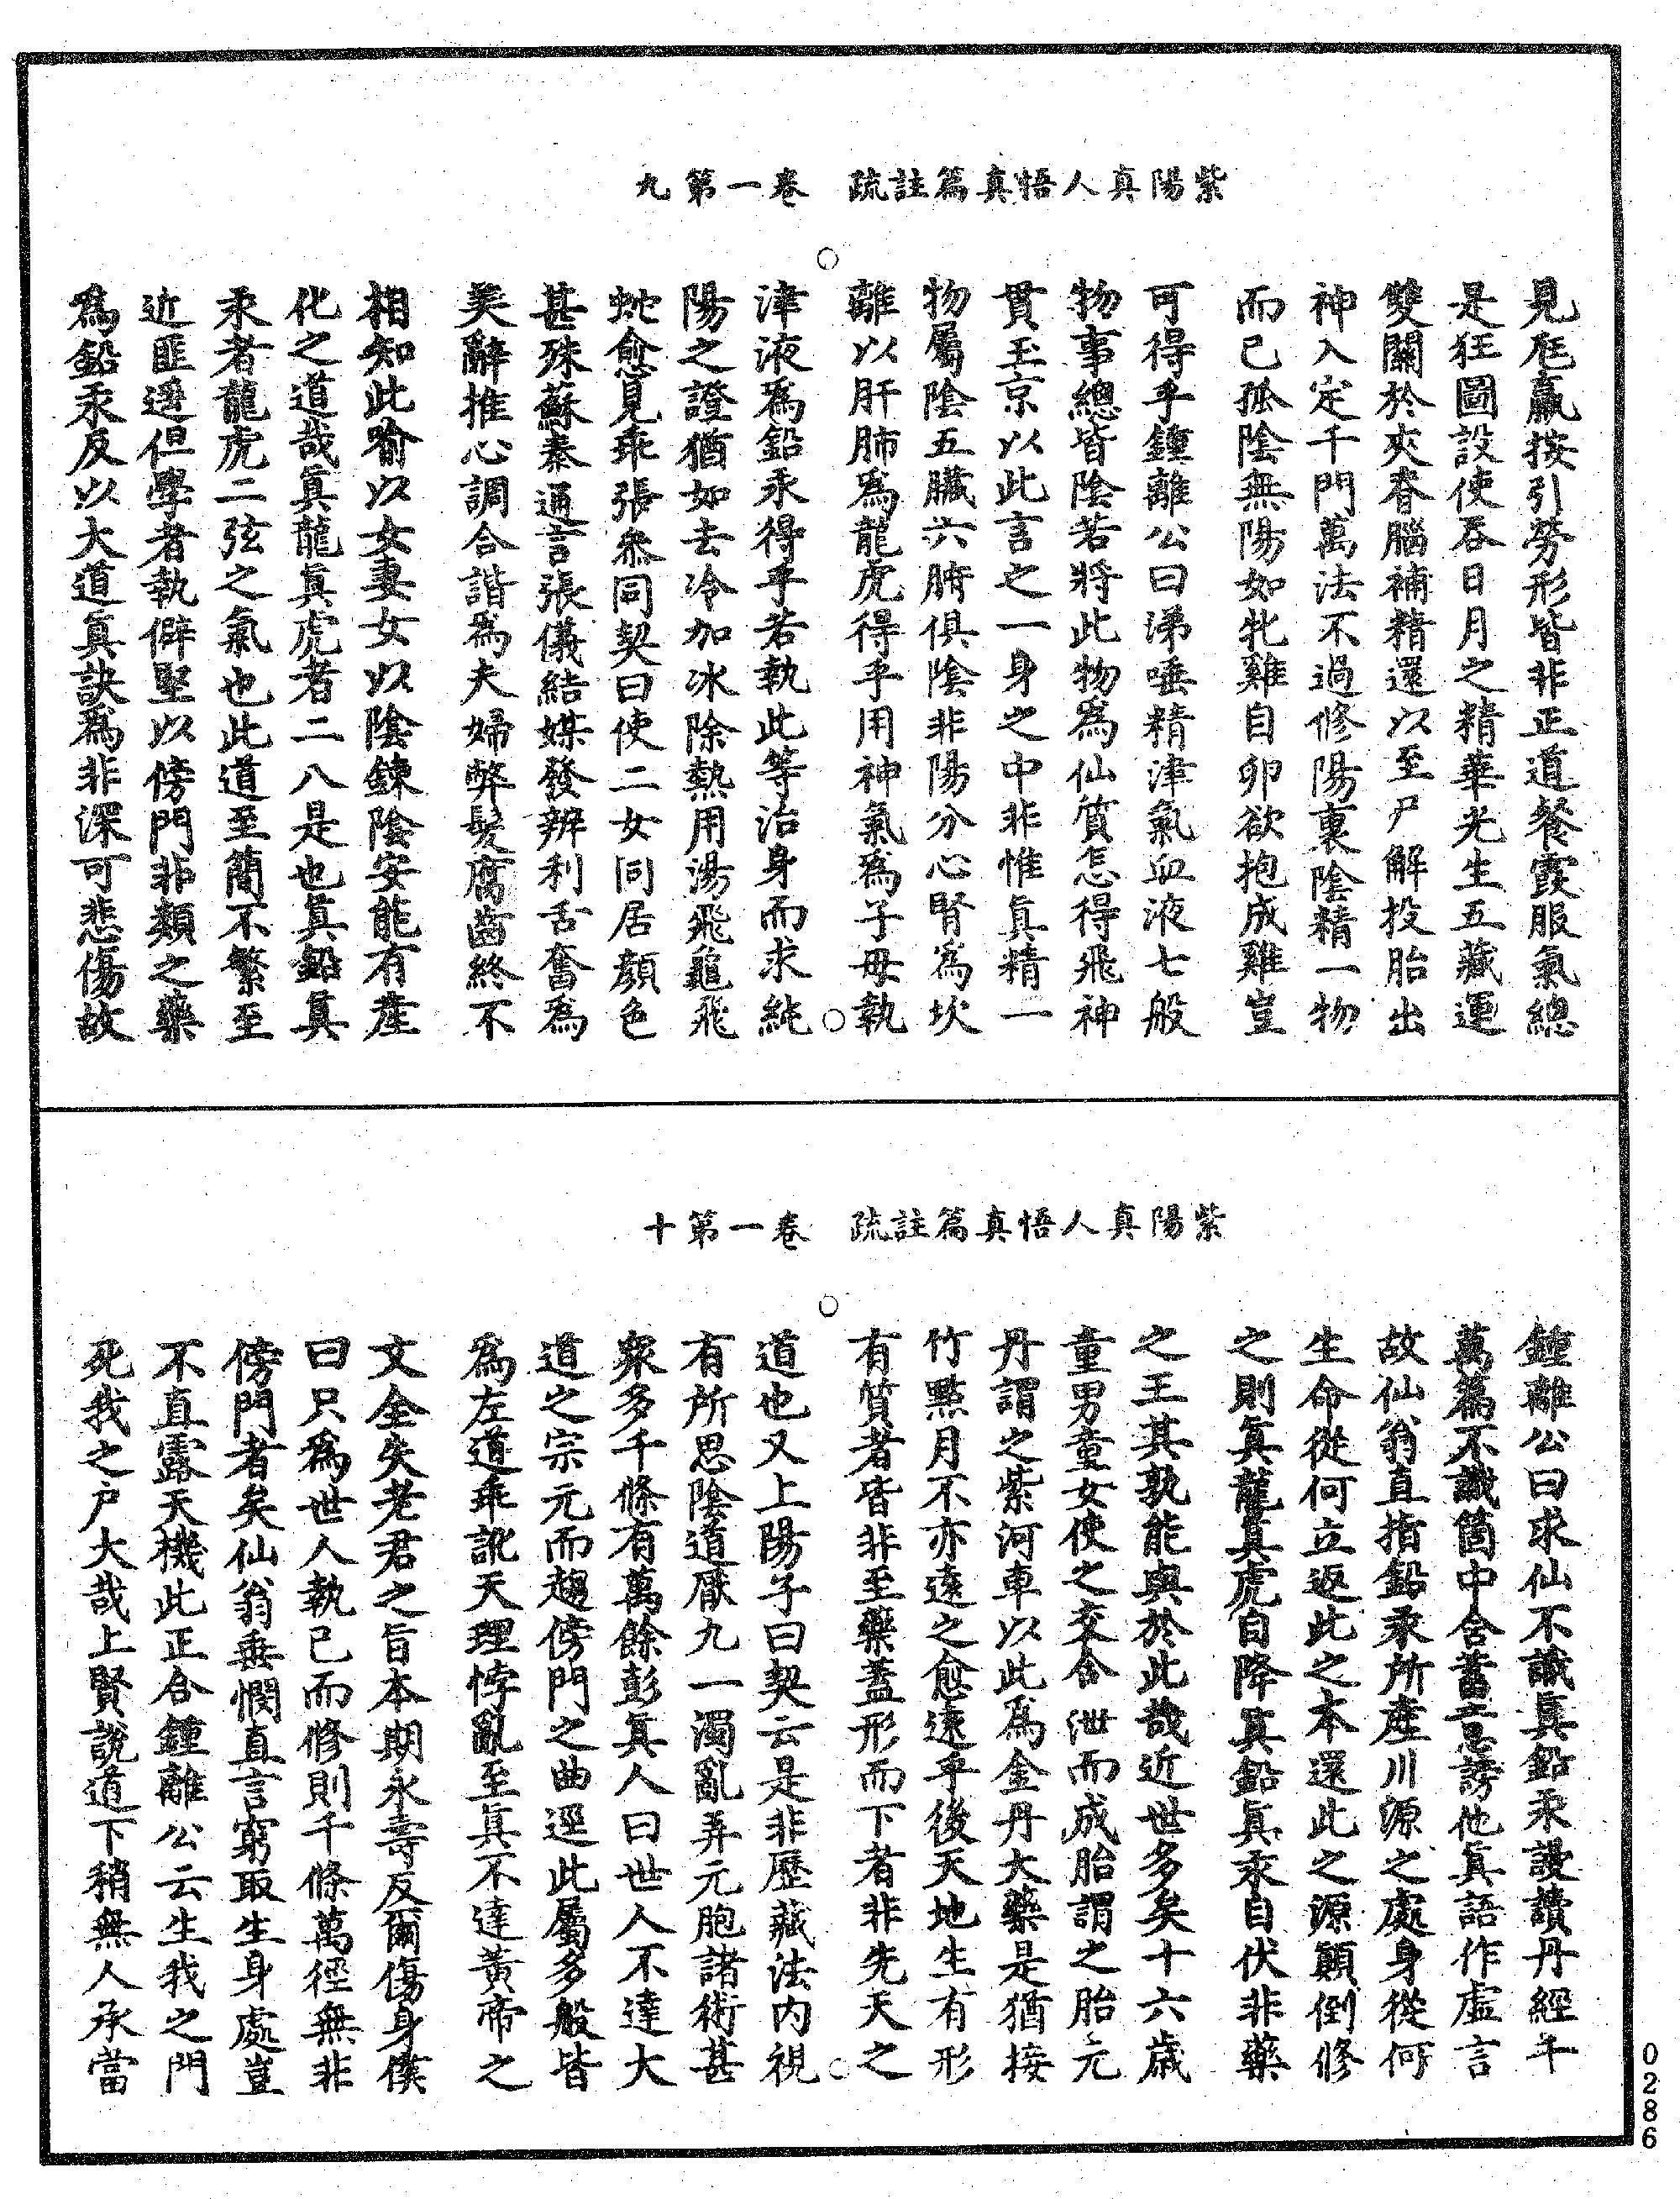 紫陽真人悟真篇註疏　卷一第九
見尫羸按引勞形皆非正道餐霞服氣總
是狂圖設使吞日月之精華光生五藏運
雙關於夾脊腦補精還以至尸解投胎出
神入定千門萬法不過修陽裏陰精一物
而已孤陰無陽如牝雞自卵欲抱成雞豈
可得乎鍾離公曰涕唾精津氣血液七般
物事總皆陰若將此物為仙質怎得飛神
貫玉京以此言之一身之中非惟真精一
物屬陰五臟六腑俱陰非陽分心腎為坎
離以肝肺為龍虎得乎用神氣為子母執
津液為鉛汞得乎若執此等治身而求純
陽之證猶如去冷加冰除熱用湯飛龜飛
蛇愈見乖張叅同契曰使二女同居顏色
甚殊蘇秦通言張儀結媒發辨利舌奮為
美辭推心調合諧為夫婦弊髮腐齒終不
相知此喻以女妻女以陰鍊陰安能有產
化之道哉真龍真虎者二八是也真鉛真
汞者龍虎二弦之氣也此道至簡不繁至
近匪遙但學者執僻堅以傍門非類之藥
為鉛汞反以大道真訣為非深可悲傷故
紫陽真人悟真篇註疏　卷一第十
鍾離公曰求仙不識真鉛汞謾讀丹經千
萬篇不識箇中舍蓄工忌謗他真語作虛言
故仙翁直指鉛汞所產川源之處身從何
生命從何立返此之本還此之源顛倒修
之則真龍真虎自降真鉛真汞自伏非藥
之王其孰能與於此哉近世多矣十六歲
童男童女使之交合泄而成胎謂之胎元
丹謂之紫河車以此為金丹大藥是猶接
竹點月不亦遠之愈遠乎後天地生有形
有質者皆非至藥蓋形而下者非先天之
道也又上陽子曰契云是非歷藏法內視
有所思陰道厭九一濁亂弄元胞諸術甚
衆多千條有萬餘彭真人曰世人不達大
道之宗元而趨傍門之曲逕此屬多般皆
為左道乖訛天理悖亂至真不達黃帝之
文全失老君之旨本期永壽反爾傷身僕
曰只為世人執己而修則千條萬徑無非
傍門者矣仙翁垂憫直言窮取生身處豈
不直露天機此正合鍾離公云生我之門
死我之户大哉上賢說道下稍無人承當
0286